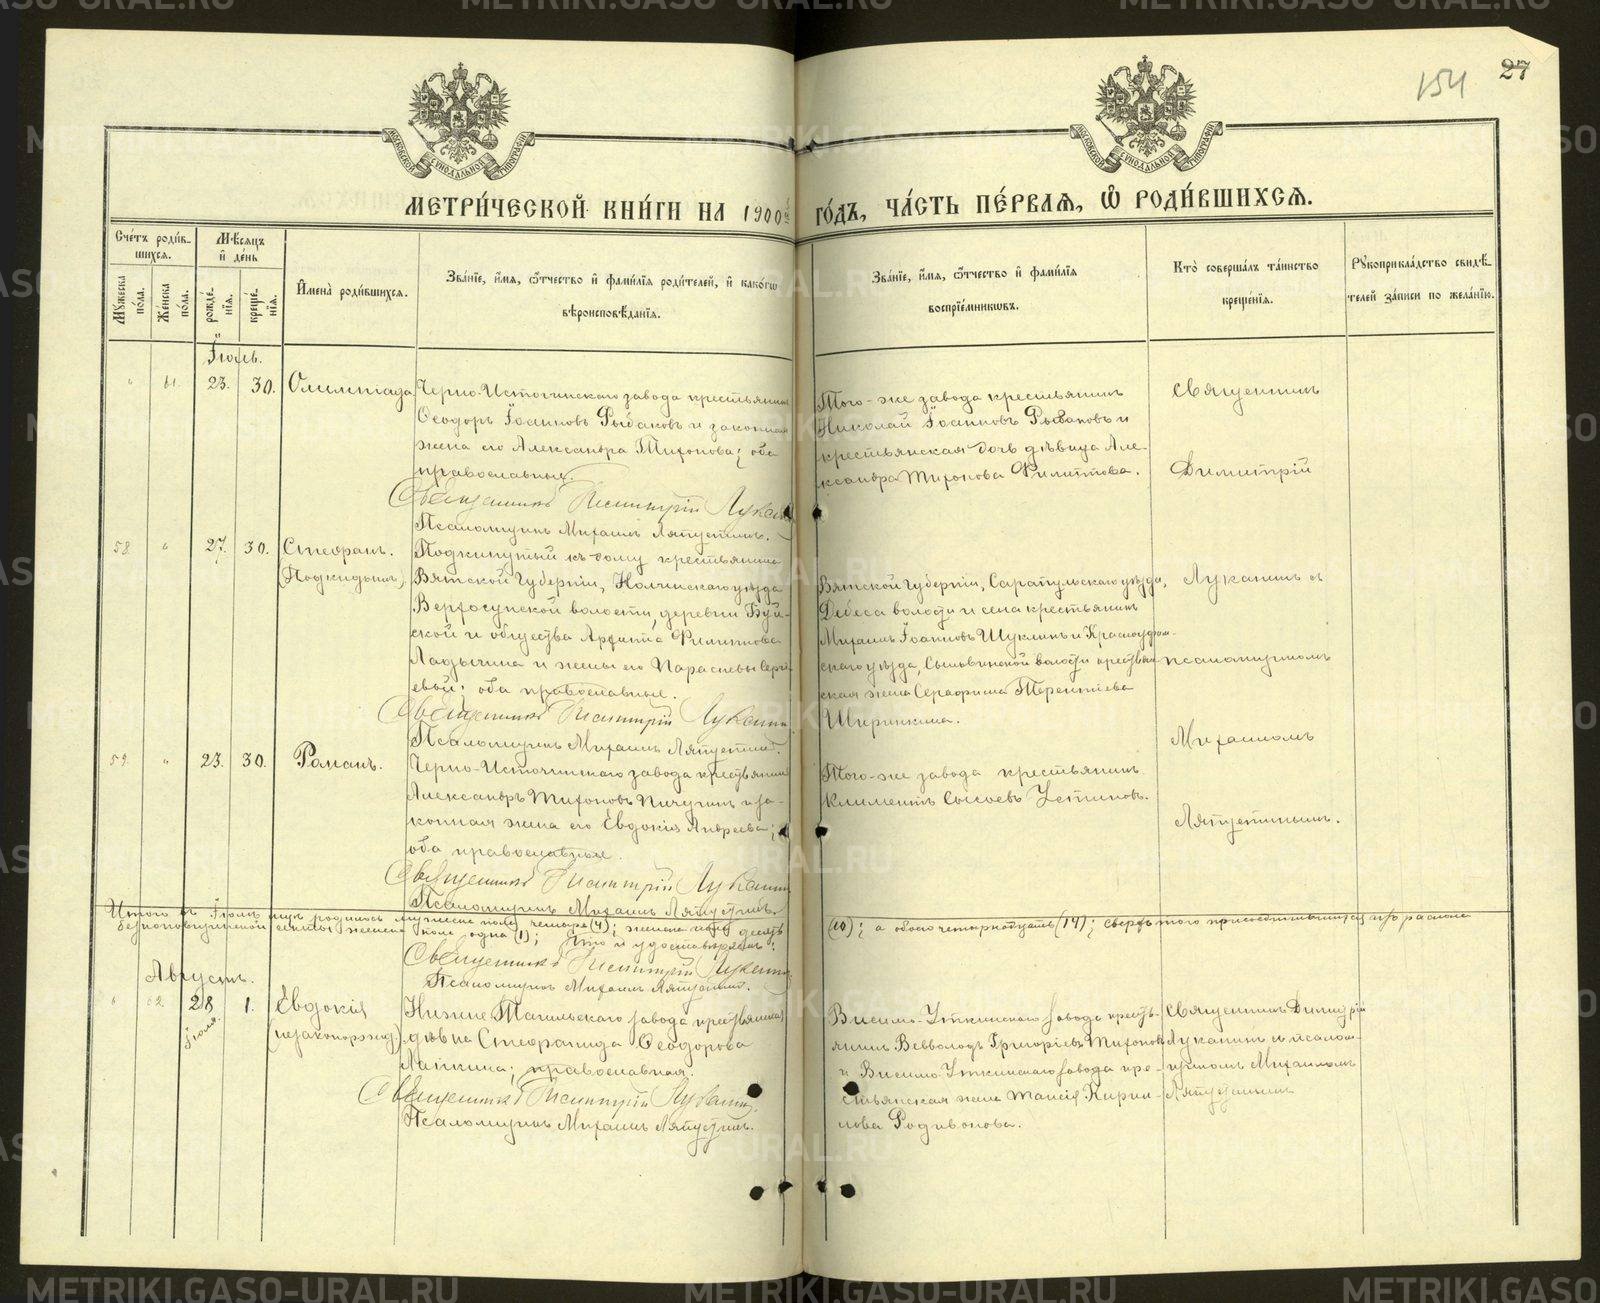 154
27
МОСКОВСКОЙ СѴНОДАЛЬНОЙ ТИПОГРАФІИ
МОСКОВСКОЙ СѴНОДАЛЬНОЙ ТИПОГРАФІИ
МЕТРИ́ЧЕСКОЙ КНИ́ГИ НА 1900й ГО́ДЪ, ЧА́СТЬ ПЕ́РВАѦ, Ѽ РОДИ́ВШИХСѦ.
Сче́тъ роди́в-
шихсѧ.
Мꙋ́жеска по́ла.
Же́нска по́ла.
Мѣ́сѧцъ и҆ де́нь
рожде́нїѧ.
креще́нїѧ.
И҆мена̀ роди́вшихсѧ.
Зва́нїе, и҆́мѧ, ѻ҆́тчество и҆ фами́лїѧ роди́телей, и҆ како́гѡ
вѣроисповѣ́данїѧ.
Зва́нїе, и҆́мѧ, ѻ҆́тчество и҆ фами́лїѧ
воспрїе́мникѡвъ.
Кто̀ соверша́лъ та́инство
креще́нїѧ.
Рꙋкоприкла́дство свидѣ́-
телей за́писи по жела́нїю.
Іюль.
" 61. 23. 30. Олимпіада
Черно-Источинскаго завода крестьянинъ
Ѳеодоръ Іоанновъ Рыбаковъ и законная
жена его Александра Тихонова; оба
православные.
Священникъ Димитрій Луканинъ
Псаломщикъ Михаилъ Ляпустинъ.
Того-же завода крестьянинъ
Николай Іоанновъ Рыбаковъ и
крестьянская дочь дѣвица Але-
ксандра Тихонова Филиппова.
Священникъ
Димитрій
58. " 27. 30. Стефанъ.
(Подкидышъ)
Подкинутый къ дому крестьянина
Вятской Губерніи, Нолинскаго уѣзда
Верхосунской волости, деревни Буй-
ской и общества Архипа Филиппова
Ладычина и жены его Параскевы Серги-
евой; оба православные.
Священникъ Димитрій Луканинъ
Псаломщикъ Михаилъ Ляпустинъ.
Вятской Губерніи, Сарапульскаго уѣзда,
Дебеса волости и села крестьянинъ
Михаилъ Іоанновъ Шуклинъ и Красноуфим-
скаго уѣзда, Сылвинской волости крестьян-
ская жена Серафима Терентіева
Ширинкина.
Луканинъ съ
псаломщикомъ
Михаиломъ
59. " 23. 30. Романъ.
Черно-Источинскаго завода крестьянинъ
Александръ Тихоновъ Пичугинъ и за-
конная жена его Евдокія Андреева;
оба православные.
Священникъ Димитрій Луканинъ
Псаломщикъ Михаилъ Ляпустинъ.
Того-же завода крестьянинъ
Климентъ Сысоевъ Устиновъ.
Ляпустинымъ.
Итого въ Іюлѣ мцѣ родилось мужеска пола четыре (4); женска пола десять (10); а обоего четырнадцать (14); сверхъ того присоединившихся изъ раскола
безпоповщинской секты женска пола одна (1); Что и удостовѣряемъ:
Священникъ Димитрій Луканинъ
Псаломщикъ Михаилъ Ляпустинъ.
Августъ.
" 62. 28 Іюля. 1. Евдокія
(незаконорожд.)
Нижне-Тагильскаго завода крестьянская
дѣвица Стефанида Ѳеодорова
Лапшина; православная.
Священникъ Димитрій Луканинъ.
Псаломщикъ Михаилъ Ляпустинъ.
Висимо-Уткинскаго завода кресть-
янинъ Всеволодъ Григоріевъ Тихоновъ
и Висимо-Уткинскаго завода кре-
стьянская жена Таисія Кирил-
лова Родионова.
Священникъ Димитрій
Луканинъ съ псалом-
щикомъ Михаиломъ
Ляпустинымъ
METRIKI.GASO-URAL.RU